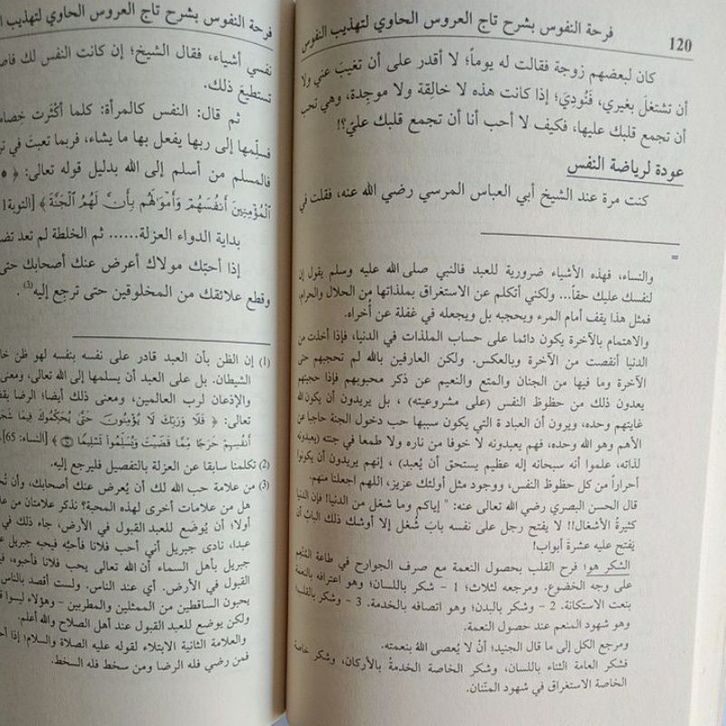 120
فرحة النفوس بشرح تاج العروس الحاوي لتهذيب النفوس
كان لبعضهم زوجة فقالت له يوماً؛ لا أقدر على أن تغيبَ عني ولا
أن تشتغلَ بغيري، فَنُودِيَ؛ إذا كانت هذه لا خالِقة ولا موجِدة، وهي تحب
أن تجمع قلبك عليها، فكيف لا أحب أنا أن تجمع قلبك عليّ؟!
عودة لرياضة النفس
كنت مرة عند الشيخ أبي العباس المرسي رضي الله عنه، فقلت في
=
والنساء، فهذه الأشياء ضرورية للعبد فالنبي صلى الله عليه وسلم يقول إن
لنفسك عليك حقاً... ولكني أتكلم عن الاستغراق بملذاتها من الحلال والحرام،
فمثل هذا يقف أمام المرء ويحجبه بل ويجعله في غفلة عن أُخراه.
والاهتمام بالآخرة يكون دائما على حساب الملذات في الدنيا، فإذا أخذت من
الدنيا أنقصت من الآخرة وبالعكس. ولكن العارفين بالله لم تحجبهم حتى
الآخرة وما فيها من الجنان والمتع والنعيم عن ذكر محبوبهم فإذا حجبتهم
يعدون ذلك من حظوظ النفس (على مشروعيته) ، بل يريدون أن يكون الله
غايتهم وحده، ويرون أن العبادة التي يكون سببها حب دخول الجنة حاجبا عن
الأهم وهو الله وحده، فهم يعبدونه لا خوفا من ناره ولا طمعا في جنته (يعبدونه
لذاته، علموا أنه سبحانه إله عظيم يستحق أن يُعبد) ، إنهم يريدون أن يكونوا
أحراراً من كل حظوظ النفس، ووجود مثل أولئك عزيز، اللهم اجعلنا منهم.
قال الحسن البصري رضي الله تعالى عنه: " إياكم وما شغل من الدنيا! فإن الدنيا
كثيرةُ الأشغال!! لا يفتح رجل على نفسه بابَ شُغل إلا أوشك ذلك البابُ أن
يَفتح عليه عشرة أبواب!
الشكر هو؛ فرح القلب بحصول النعمة مع صرف الجوارح في طاعة المنعم
على وجه الخضوع. ومرجعه لثلاث؛ 1 - شكر باللسان؛ وهو اعترافه بالنعمة
بنعت الاستكانة. 2 - وشكر بالبدن؛ وهو اتصافه بالخدمة. 3 - وشكر بالقلب؛
وهو شهود المنعم عند حصول النعمة.
ومرجع الكل إلى ما قال الجنيد؛ أنْ لا يُعصى اللهُ بنعمته.
فشكر العامة الثناء باللسان، وشكر الخاصة الخدمةُ بالأركان، وشكر خاصة
الخاصة الاستغراق في شهود المنَّان.
فرحة النفوس بشرح تاج العروس الحاوي لتهذيب
نفسي أشياء، فقال الشيخ؛ إن كانت النفس لك
تستطيعَ ذلك.
ثم قال: النفس كالمرأة؛ كلما أكثَرت
فسلِّمها إلى ربها يفعل بها ما يشاء، فربما تعبتَ في
فالمسلم من أسلم إلى الله بدليل قوله تعالى: ﴿
الْمُؤْمِنِينَ أَنفُسَهُمْ وَأَمْوَالَهُم بِأَنَّ لَهُمُ الْجَنَّةَ ﴾ [التوبة
بداية الدواء العزلة...... ثم الخلطة لم تعد
إذا أحبّك مولاك أعرض عنك أصحابك حتى
وقطع علائقك من المخلوقين حتى ترجع إليه(3).
(1) إن الظن بأن العبد قادر على نفسه بنفسه لهو ظن
الشيطان. بل على العبد أن يسلمها إلى الله تعالى، ومعنى
والإذعان لرب العالمين، ومعنى ذلك أيضا؛ الرضا
تعالى: ﴿ فَلَا وَرَبِّكَ لَا يُؤْمِنُونَ حَتَّىٰ يُحَكِّمُوكَ فِيمَا
أَنفُسِهِمْ حَرَجًا مِّمَّا قَضَيْتَ وَيُسَلِّمُوا تَسْلِيمًا ﴾ [النساء: 65].
(2) تكلمنا سابقا عن العزلة بالتفصيل فليرجع إليه.
(3) من علامة حب الله لك أن يُعرض عنك أصحابك، وأن
هل من علامات أخرى لهذه المحبة؟ نذكر علامتان من
أولا؛ أن يُوضع للعبد القبول في الأرض، جاء ذلك في
عبدا، نادى جبريل أني أحب فلانا فأحبَّه فيحبه جبريل
جبريل بأهل السماء أن الله تعالى يحب فلانا فأحبوه،
القبول في الأرض. أي عند الناس. ولست أقصد بالناس
يحبون الساقطين من الممثلين والمطربين - وهؤلاء ليسوا
ولكن يوضع للعبد القبول عند أهل الصلاح والله أعلم.
والعلامة الثانية الابتلاء لقوله عليه الصلاة والسلام؛ إذا
فمن رضي فله الرضا ومن سخط فله السخط.